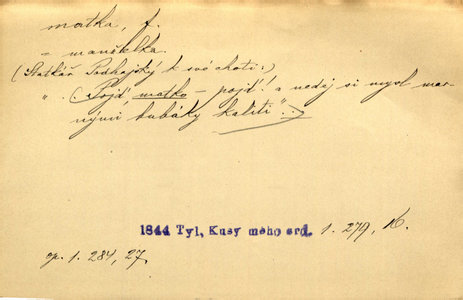 matka, f.
– manželka.
(Statkář Podhajský k své choti:)
„..(Pojď, matko – pojď! a nedej si mysl mar-
nými bubáky kaliti"..)
1844 Tyl, Kusy mého srd. 1. 279, 16.
op. 1. 284, 27.